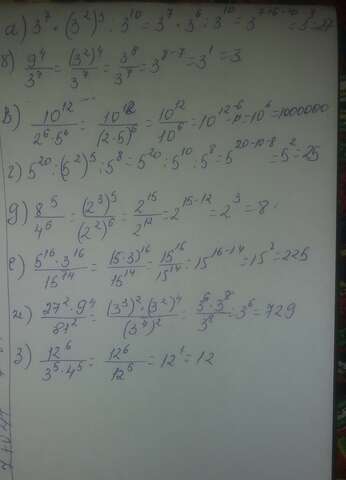 а) 3⁷ · (3²)³ : 3¹⁰ = 3⁷ · 3⁶ : 3¹⁰ = 3⁷⁺⁶⁻¹⁰ = 3³ = 27
б) 9⁴/3⁷ = (3²)⁴/3⁷ = 3⁸/3⁷ = 3⁸⁻⁷ = 3¹ = 3
в) 10¹²/2⁶·5⁶ = 10¹²/(2·5)⁶ = 10¹²/10⁶ = 10¹²⁻⁶ = 10⁶ = 1000000
г) 5²⁰ : (5²)⁵ : 5⁸ = 5²⁰ : 5¹⁰ : 5⁸ = 5²⁰⁻¹⁰⁻⁸ = 5² = 25
д) 8⁵/4⁶ = (2³)⁵/(2²)⁶ = 2¹⁵/2¹² = 2¹⁵⁻¹² = 2³ = 8
е) 5¹⁶·3¹⁶/15¹⁴ = (15·3)¹⁶/15¹⁴ = 15¹⁶/15¹⁴ = 15¹⁶⁻¹⁴ = 15² = 225
ж) 27²·9⁴/81² = (3³)²·(3²)⁴/(3⁴)² = 3⁶·3⁸/3⁸ = 3⁶ = 729
з) 12⁶/3⁵·4⁵ = 12⁶/12⁵ = 12¹ = 12